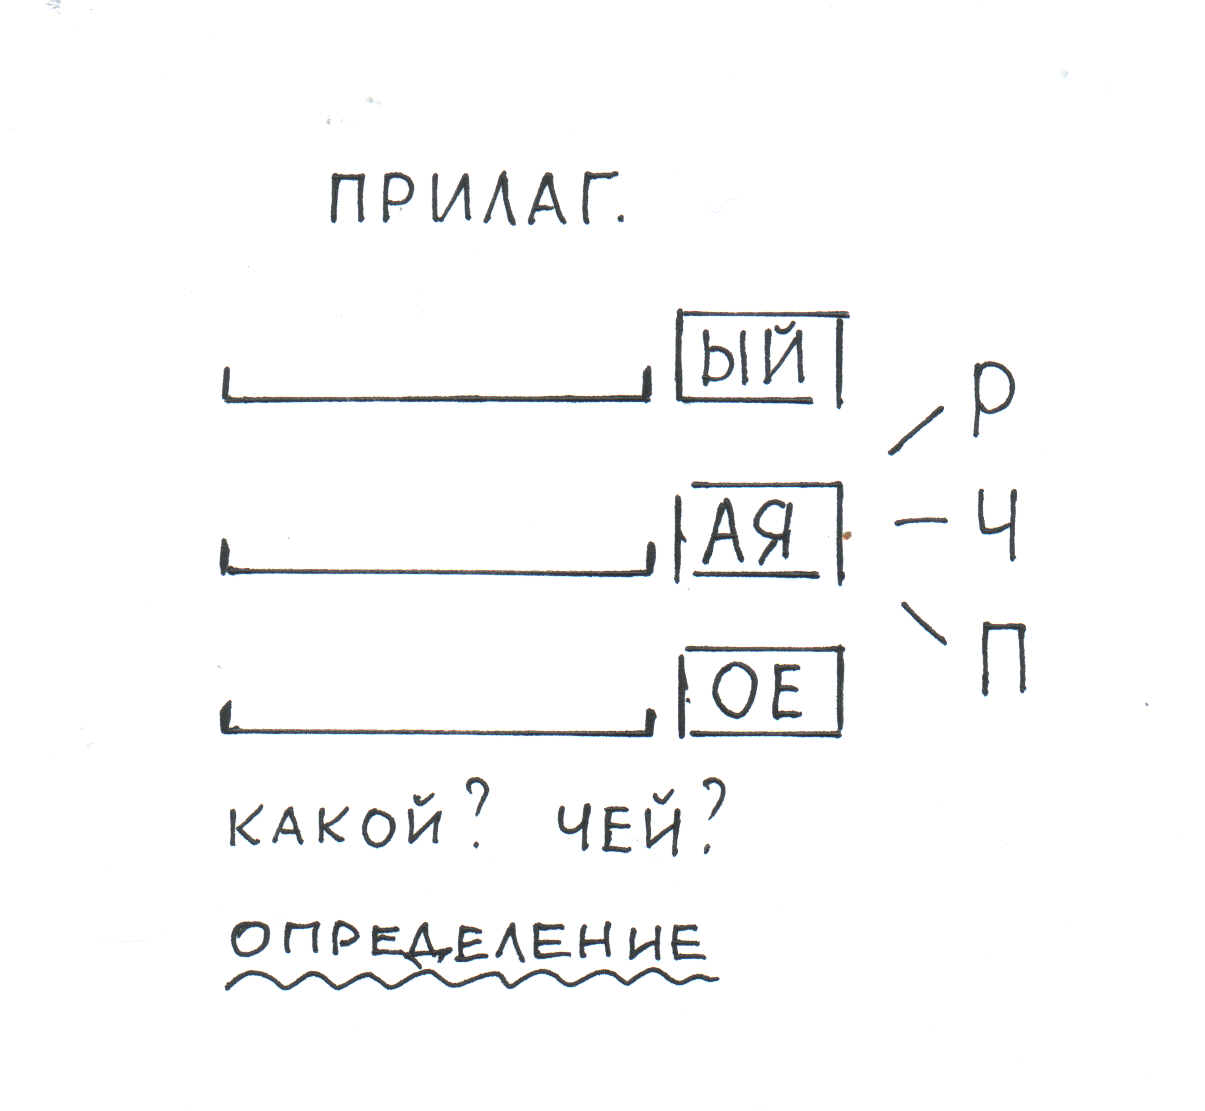 ПРИЛАГ.
ЫЙ
Р
АЯ
Ч
ОЕ
П
КАКОЙ? ЧЕЙ?
ОПРЕДЕЛЕНИЕ